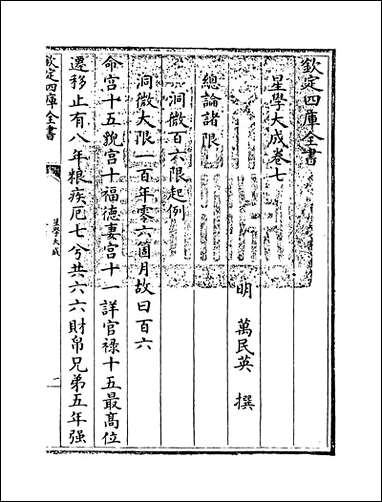 欽定四庫全書
星學大成卷七
明 萬民英 撰
總論諸限
洞微百六限起例
洞微大限一百年零六箇月故曰百六
命宮十五貌宮十福德妻宮十一詳官祿十五最髙位
遷移止有八年粮疾厄七兮共六六財帛兄弟五年强
欽定四庫全書
星學大成
二